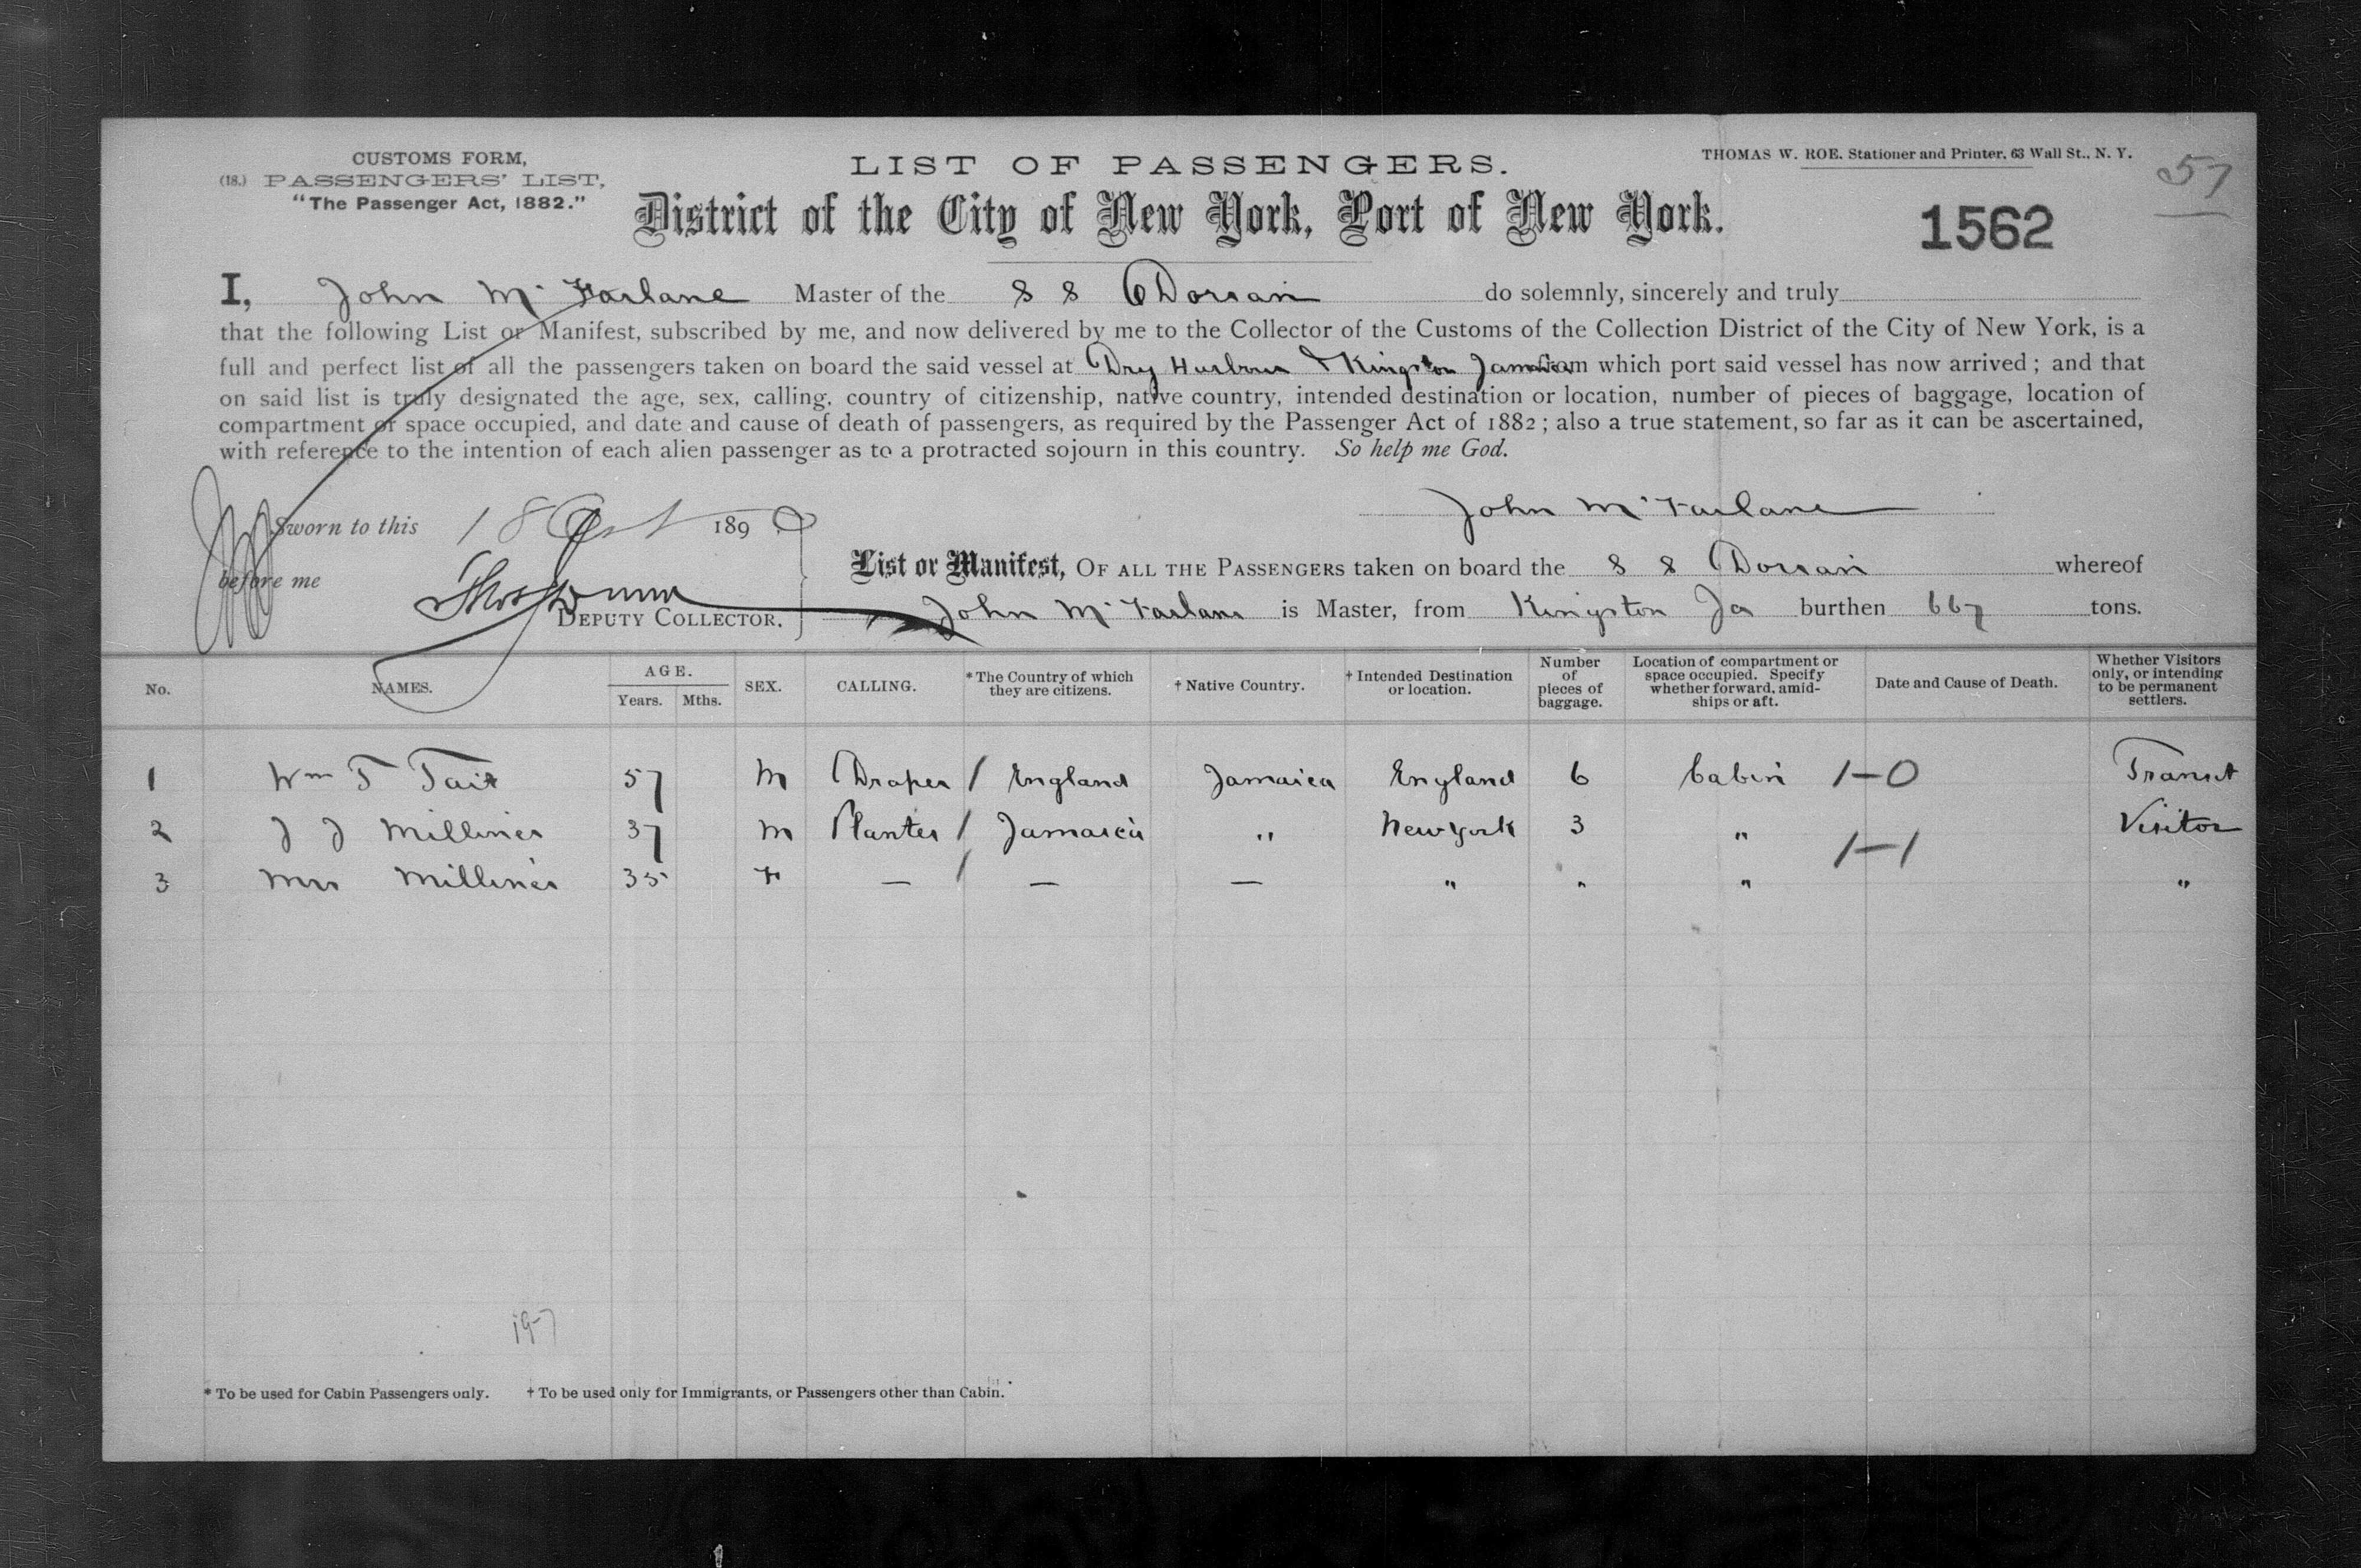 CUSTOMS FORM,
(18.) PASSENGERS' LIST,
"The Passenger Act, 1882."
LIST OF PASSENGERS.
THOMAS W. ROE. Stationer and Printer, 63 Wall St., N. Y.
57
District of the City of New York, Port of New York.
1562
I, John McFarlane Master of the S S Dorian do solemnly, sincerely and truly
that the following List or Manifest, subscribed by me, and now delivered by me to the Collector of the Customs of the Collection District of the City of New York, is a
full and perfect list of all the passengers taken on board the said vessel at Dry Harbour & Kingston Jamaica from which port said vessel has now arrived; and that
on said list is truly designated the age, sex, calling, country of citizenship, native country, intended destination or location, number of pieces of baggage, location of
compartment or space occupied, and date and cause of death of passengers, as required by the Passenger Act of 1882; also a true statement, so far as it can be ascertained,
with reference to the intention of each alien passenger as to a protracted sojourn in this country. So help me God.
John McFarlane
Sworn to this 18 Oct 189
before me
DEPUTY COLLECTOR.
List or Manifest, OF ALL THE PASSENGERS taken on board the S S Dorian whereof
John McFarlane is Master, from Kingston Ja burthen 667 tons.
No. NAMES. AGE. Years. Mths. SEX. CALLING. *The Country of which they are citizens. † Native Country. † Intended Destination or location. Number of pieces of baggage. Location of compartment or space occupied. Specify whether forward, amid-ships or aft. Date and Cause of Death. Whether Visitors only, or intending to be permanent settlers.
1 Wm T Tait 57 M Draper / England Jamaica England 6 Cabin 1-0 Transit
2 J J Milliner 37 M Planter / Jamaica " New York 3 " 1-1 Visitor
3 Mrs Milliner 35 F — / — — " " " "
19-7
* To be used for Cabin Passengers only. † To be used only for Immigrants, or Passengers other than Cabin.